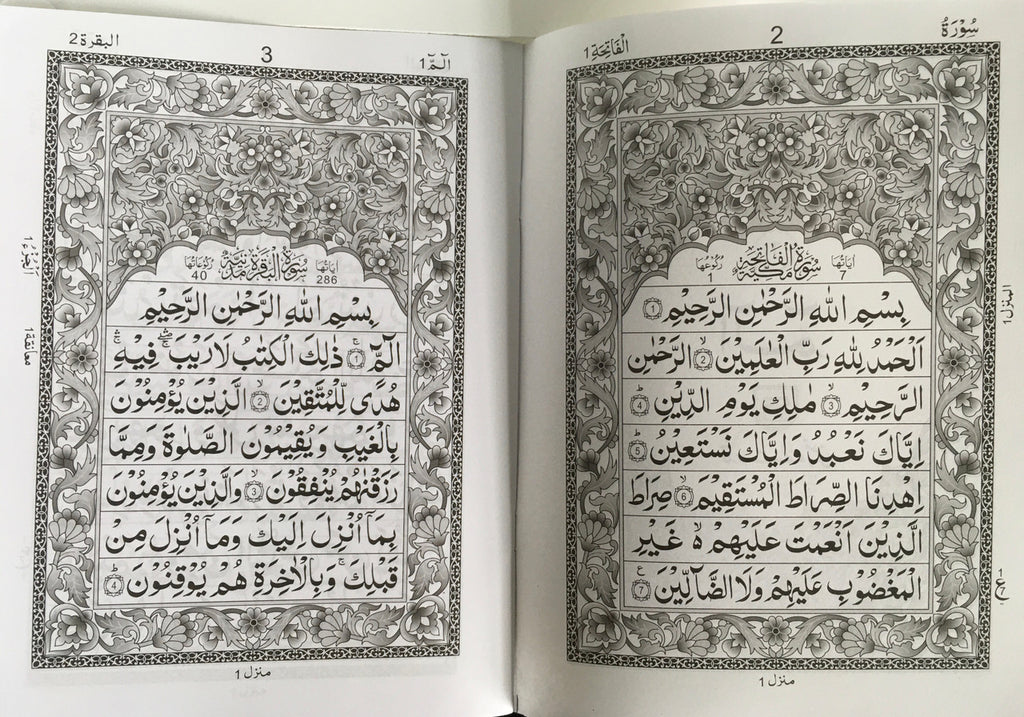 سُوْرَةُ
2
الْفَاتِحَةِ 1
سُوْرَةُ الْفَاتِحَةِ مَكِّيَّةٌ
اٰيَاتُهَا 7
رُكُوْعُهَا 1
بِسْمِ اللهِ الرَّحْمٰنِ الرَّحِيْمِ ۝1
اَلْحَمْدُ لِلّٰهِ رَبِّ الْعٰلَمِيْنَ ۝2 ۙ الرَّحْمٰنِ
الرَّحِيْمِ ۝3 ۙ مٰلِكِ يَوْمِ الدِّيْنِ ۝4
اِيَّاكَ نَعْبُدُ وَاِيَّاكَ نَسْتَعِيْنُ ۝5
اِهْدِنَا الصِّرَاطَ الْمُسْتَقِيْمَ ۝6 ۙ صِرَاطَ
الَّذِيْنَ اَنْعَمْتَ عَلَيْهِمْ ۙ ۵ غَيْرِ
الْمَغْضُوْبِ عَلَيْهِمْ وَلَا الضَّآلِّيْنَ ۝7
المنزل 1
منزل 1
الٓمّٓ 1
3
البقرة 2
سُوْرَةُ الْبَقَرَةِ مَدَنِيَّةٌ
اٰيَاتُهَا 286
رُكُوْعَاتُهَا 40
بِسْمِ اللهِ الرَّحْمٰنِ الرَّحِيْمِ
الٓمّٓ ۝1 ۚ ذٰلِكَ الْكِتٰبُ لَا رَيْبَ ۛ فِيْهِ ۛ
هُدًى لِّلْمُتَّقِيْنَ ۝2 ۙ الَّذِيْنَ يُؤْمِنُوْنَ
بِالْغَيْبِ وَيُقِيْمُوْنَ الصَّلٰوةَ وَمِمَّا
رَزَقْنٰهُمْ يُنْفِقُوْنَ ۝3 ۙ وَالَّذِيْنَ يُؤْمِنُوْنَ
بِمَآ اُنْزِلَ اِلَيْكَ وَمَآ اُنْزِلَ مِنْ
قَبْلِكَ ۚ وَبِالْاٰخِرَةِ هُمْ يُوْقِنُوْنَ ۝4
اَلْجُزْءُ 1
معانقة 1
منزل 1